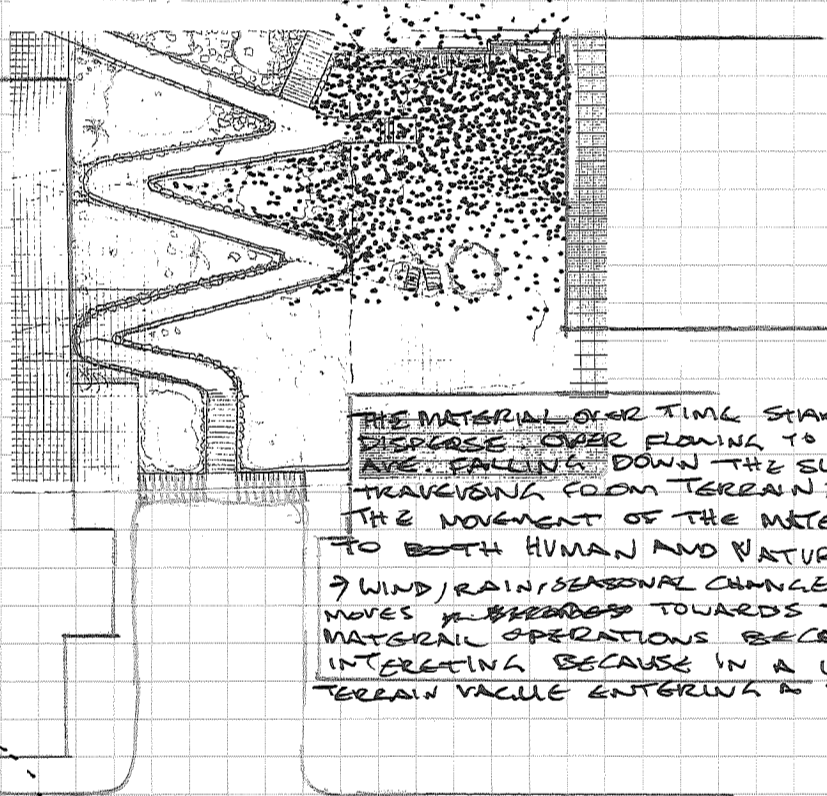 THE MATERIAL OVER TIME STAR
DISPERSE. OVER FLOWING TO
AVE. FALLING DOWN THE SL
TRAVERSING FROM TERRAIN
THE MOVEMENT OF THE MATE
TO BOTH HUMAN AND NATUR
→ WIND/RAIN/SEASONAL CHANGE
MOVES TOWARDS
MATERAIL OPERATIONS BECO
INTERETING BECAUSE IN A
TERRAIN VAGUE ENTERING A